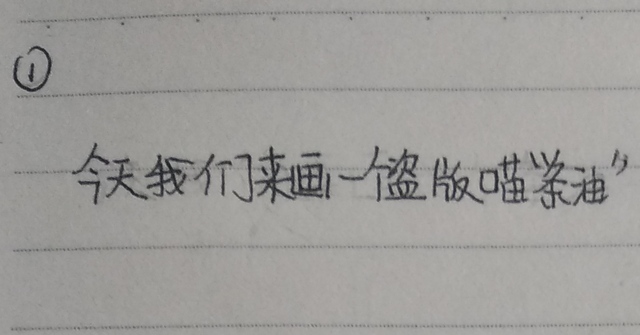 ①
今天我们来画一个盗版喵“茶油”